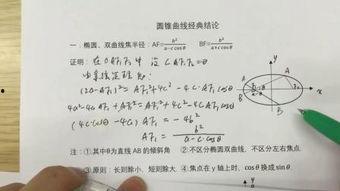 圆锥曲线经典结论
一．椭圆、双曲线焦半径：AF=b²/(a-c cosθ)　BF=b²/(a+c cosθ)
证明：在△AF₁F₂中 设∠AF₁F₂=θ
由余弦定理知：
(2a-AF₁)²=AF₁²+4c²-4c·AF₁cosθ
4a²-4aAF₁+AF₁²=AF₁²+4c²-4c·AF₁cosθ
(4c·cosθ-4a)AF₁=-4b²
AF₁=b²/(a-c·cosθ)
y
A
x
B
注：①其中θ为直线AB的倾斜角　②不区分椭圆双曲线，不区分左右焦点
③原则：长则除小，短则除大　④焦点在y轴上时，cosθ换成sinθ